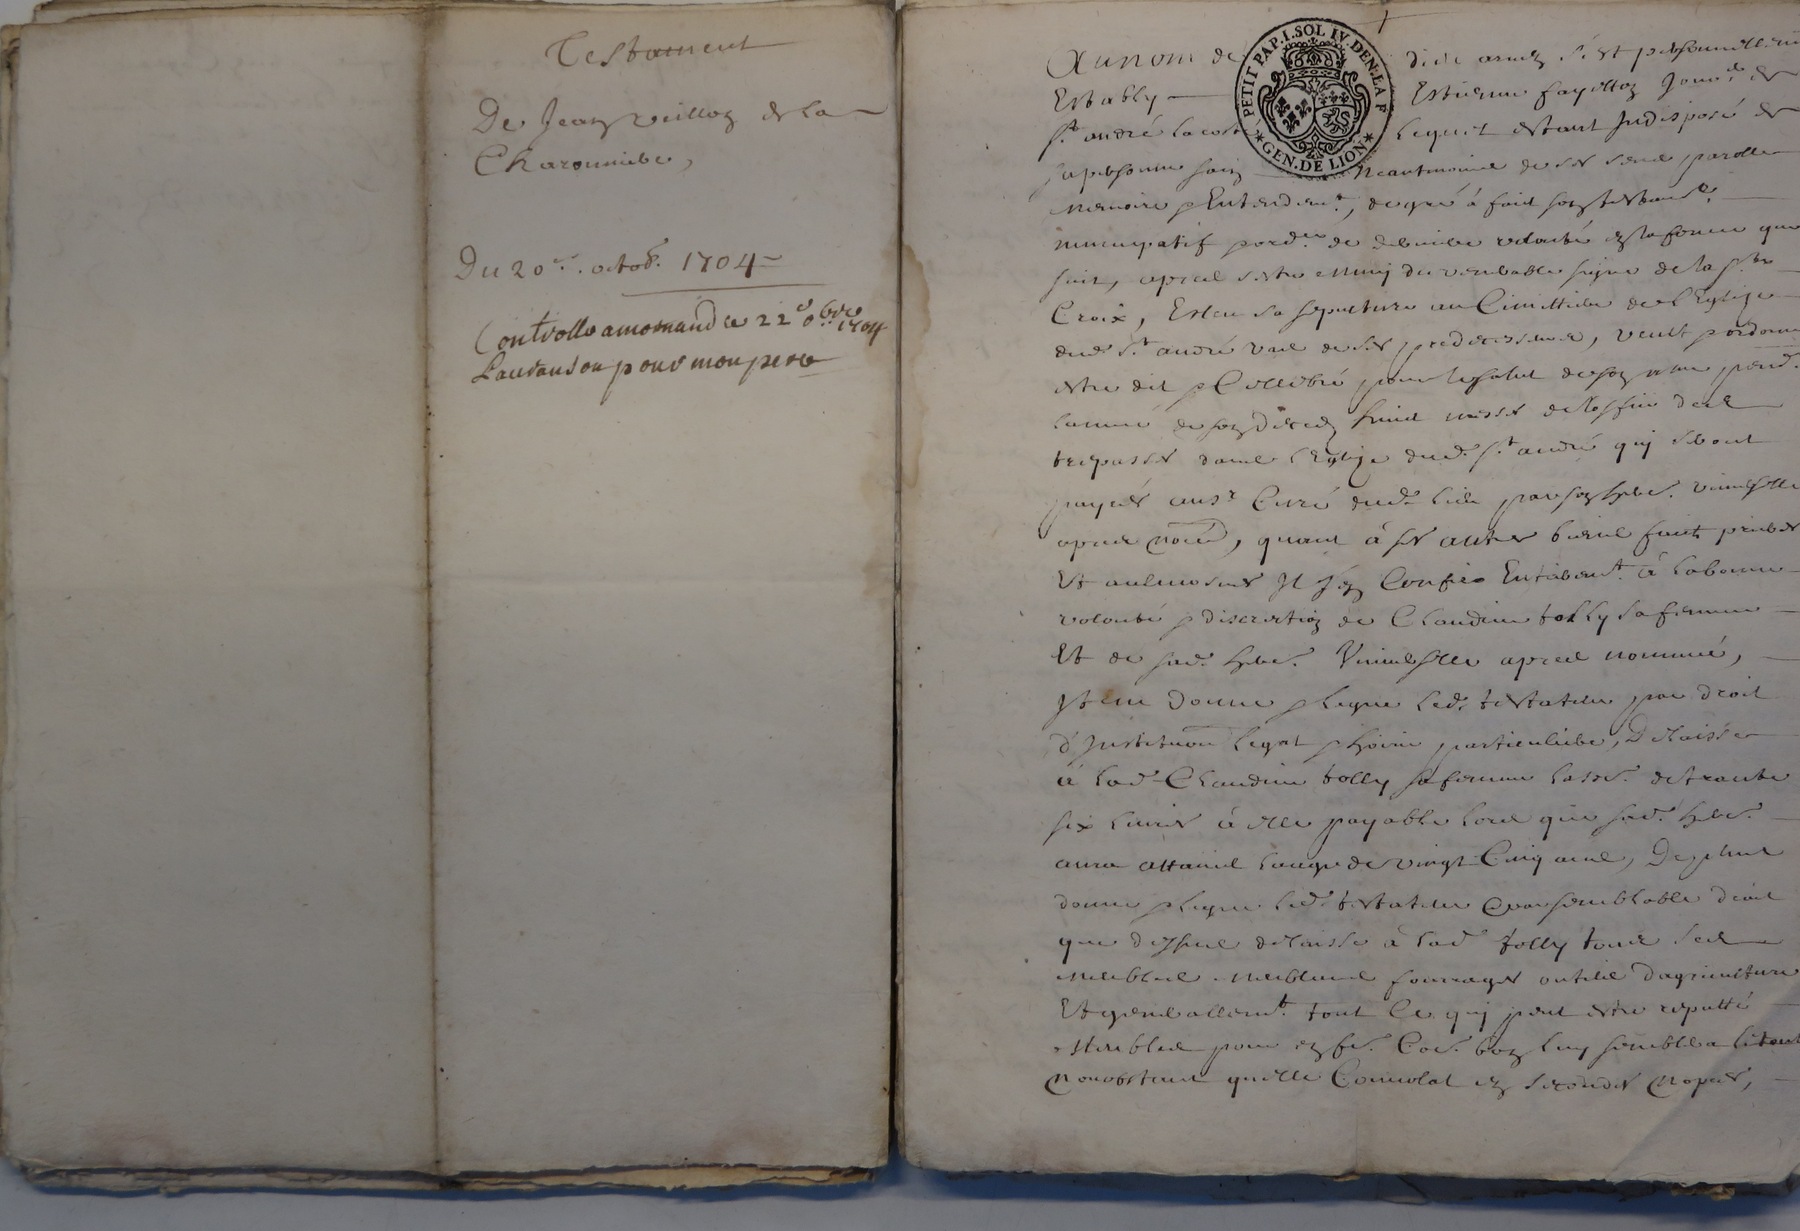 Testament
De Jean veillon de la
Charonniere,
Du 20e. octob. 1704
Controlle a mornand ce 22e 8bre 1704
Lauranson pour mon pere
PETIT PAP. I. SOL IV. DEN. LA F
GEN. DE LION
Au nom de dieu amen s'est personnellem
Estably Estienne fayolloz Journ. de
st. andré la coste lequel estant Indisposé de
sa personne sain neantmoins de ses sens parolle
memoire & Entendemt., de gré à fait son testamt.
nuncupatif & ordre. de derniere volonté en la forme que
suit, apres s'estre muny du venerable signe de la ste
Croix, Esleu sa sepulture au Cimittiere de l'Eglize
dud. St. andré vas de ses predecesseurs, veult & ordonne
estre dit & Cellebré pour le salut de son ame pend.
lannée de son deceds huict messes de l'offic des
trepasses dans l'Eglize dud. st. andré qui seront
payées au sr. Curé dud. lieu par son here. universelle
apres nomé, quant à ses autres biens faits prieres
Et aulmosnes Il s'en Confie Entieremt. à la bonne
volonté & discretion de Claudine jolly sa femme
Et de sad. here. Universelle apres nommée,
Item Donne & legue led. testateur par droit
d'Institution legat & hoirie particuliere, Delaisse
à lad. Claudine jolly sa femme la som. de trante
six livres à elle payable lors que sad. here.
aura attaint l'auge de vingt Cinq ans, De plus
donne & legue led. testateur & par semblable droit
que dessus delaisse à lad. jolly tous ses
meubles meublans fourrages outils d'agriculture
Et generallemt. tout Ce qui peut estre reputté
Meubles pour en fe. Coe. bon luy semblera le tout
nonobstant quelle Convolat en secondes nopces,